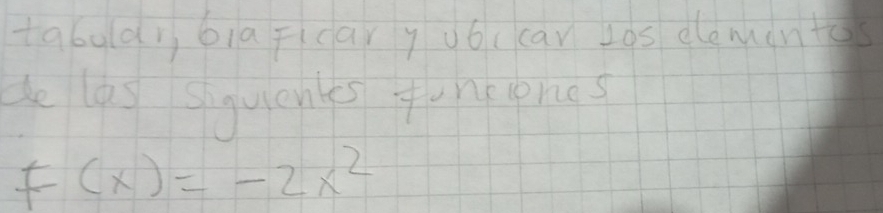 tabular, graficar y ubicar los elementos
de las siguientes funciones
F(x) = -2x²